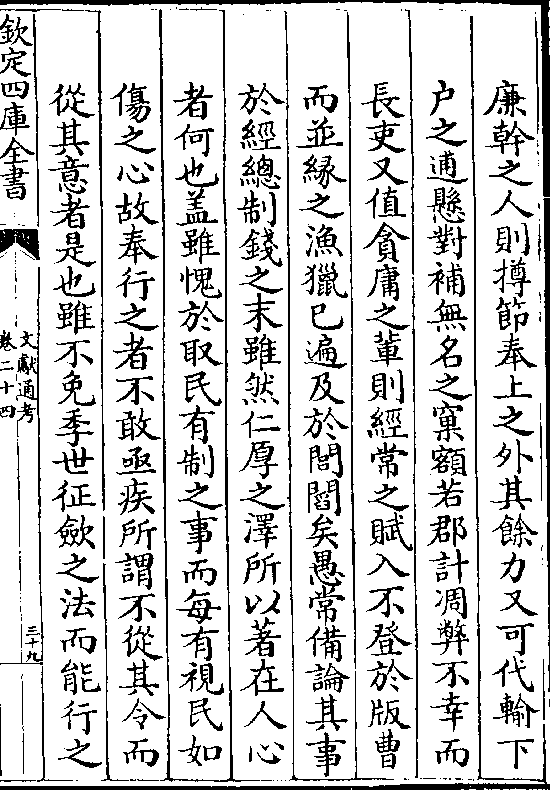 廉幹之人則撙節奉上之外其餘力又可代輸下
户之逋懸對補無名之窠額若郡計凋弊不幸而
長吏又值貪庸之輩則經常之賦入不登於版曹
而並緣之漁獵已遍及於閭閻矣愚常備論其事
於經總制錢之末雖然仁厚之澤所以著在人心
者何也盖雖愧於取民有制之事而每有視民如
傷之心故奉行之者不敢亟疾所謂不從其令而
從其意者是也雖不免季世征斂之法而能行之
欽定四庫全書
文獻通考
卷二十四
三十九